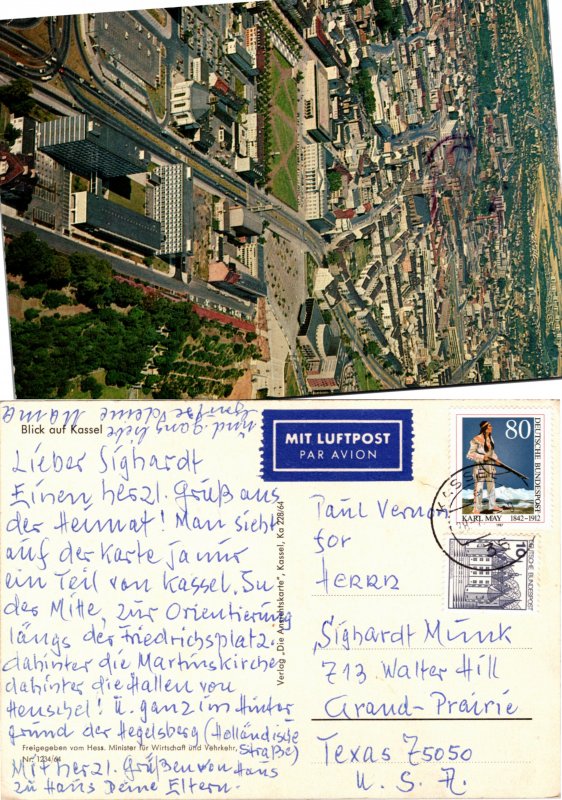 und ganz liebe
Grüße Deine Mama
Blick auf Kassel
Lieber Sighardt
Einen herzl. Gruß aus
der Heimat! Man sieht
auf der Karte ja nur
ein Teil von Kassel. In
der Mitte, zur Orientierung
längs der Friedrichsplatz.
dahinter die Martinskirche
dahinter die Hallen von
Henschel! u. ganz im Hinter
grund der Hegelsberg (Holländische
Straße)
Freigegeben vom Hess. Minister für Wirtschaft und Verkehr,
Nr. 1234/64
Mit herzl. Grüßen von Haus
zu Haus Deine Eltern.
Verlag „Die Ansichtskarte", Kassel, Ka 228/64
MIT LUFTPOST
PAR AVION
80
DEUTSCHE BUNDESPOST
KARL MAY 1842-1912
KASSEL
10
DEUTSCHE BUNDESPOST
Paul Vernon
for
HERRN
Sighardt Munk
713 Walter Hill
Grand-Prairie
Texas 75050
U. S. A.